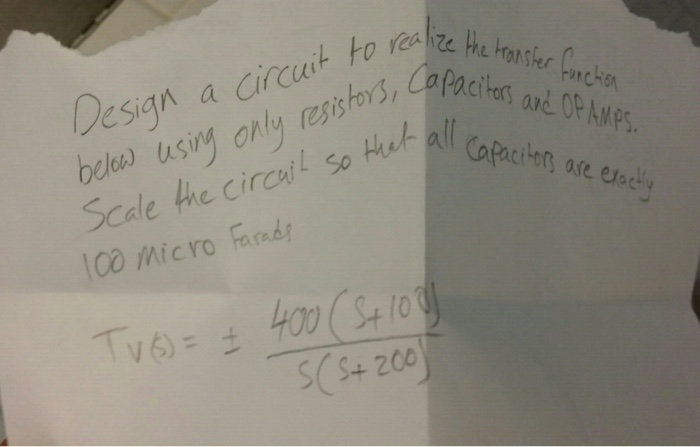 Design a circuit to realize the transfer function
below using only resistors, Capacitors and OPAMPS.
Scale the circuit so that all capacitors are exactly
100 micro Farads
Tv(s) = ± 400(S+100)
S(S+200)